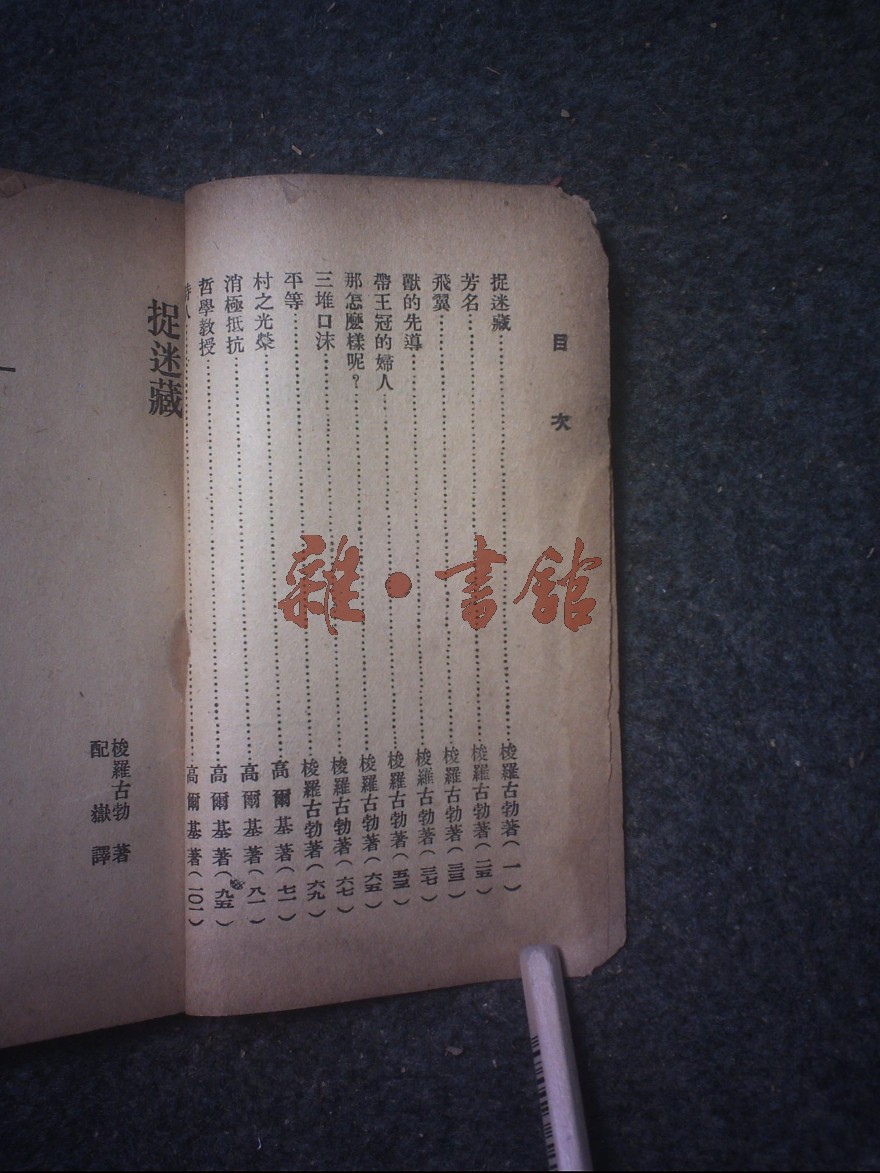 目次
捉迷藏……梭羅古勃著(一)
芳名……梭羅古勃著(二五)
飛翼……梭羅古勃著(三三)
獸的先導……梭羅古勃著(三七)
帶王冠的婦人……梭羅古勃著(五三)
那怎麼樣呢?……梭羅古勃著(六五)
三堆口沫……梭羅古勃著(六七)
平等……梭羅古勃著(六九)
村之光榮……高爾基著(七一)
消極抵抗……高爾基著(八一)
哲學教授……高爾基著(九五)
詩人……高爾基著(一〇一)
捉迷藏
梭羅古勃 著
配嶽 譯
雜·書館